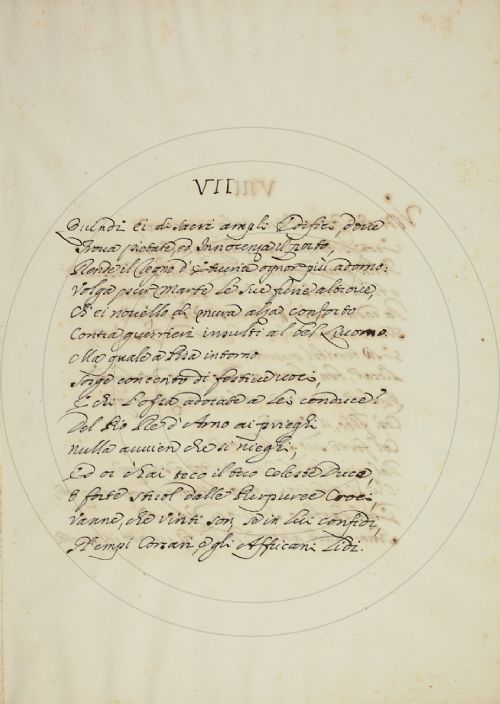 VII
Quindi ei di sacri ampli Edifici, dove
Trova pietate, ed Innocenza il porto,
Rende il Regno d'Etruria ognor più adorno:
Volga pur Marte le sue furie altrove,
Ch'ei novello di mura alza conforto
Contra guerrieri insulti al bel Livorno.
Ma quale a Pisa intorno
Sorge concento di festive voci,
E chi l'Osta adorate a lei conduce?
Del Rè d'Arno ai prieghi
Nulla avvien che si nieghi,
Ed or ch'ai teco il tuo Celeste Duce,
O forte stuol dalle Purpuree Croci,
Vanne, che vinti son, se in lui confidi,
Gl'empi Corsari, e gli Affricani Lidi.